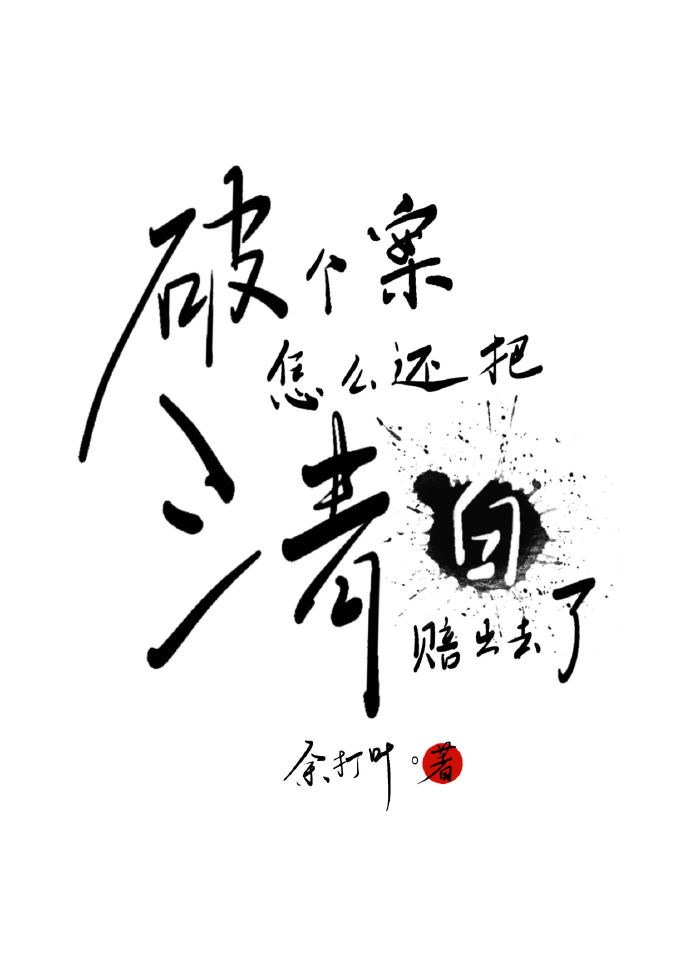 破个案
怎么还把
清白
赔出去了
余打叶。著